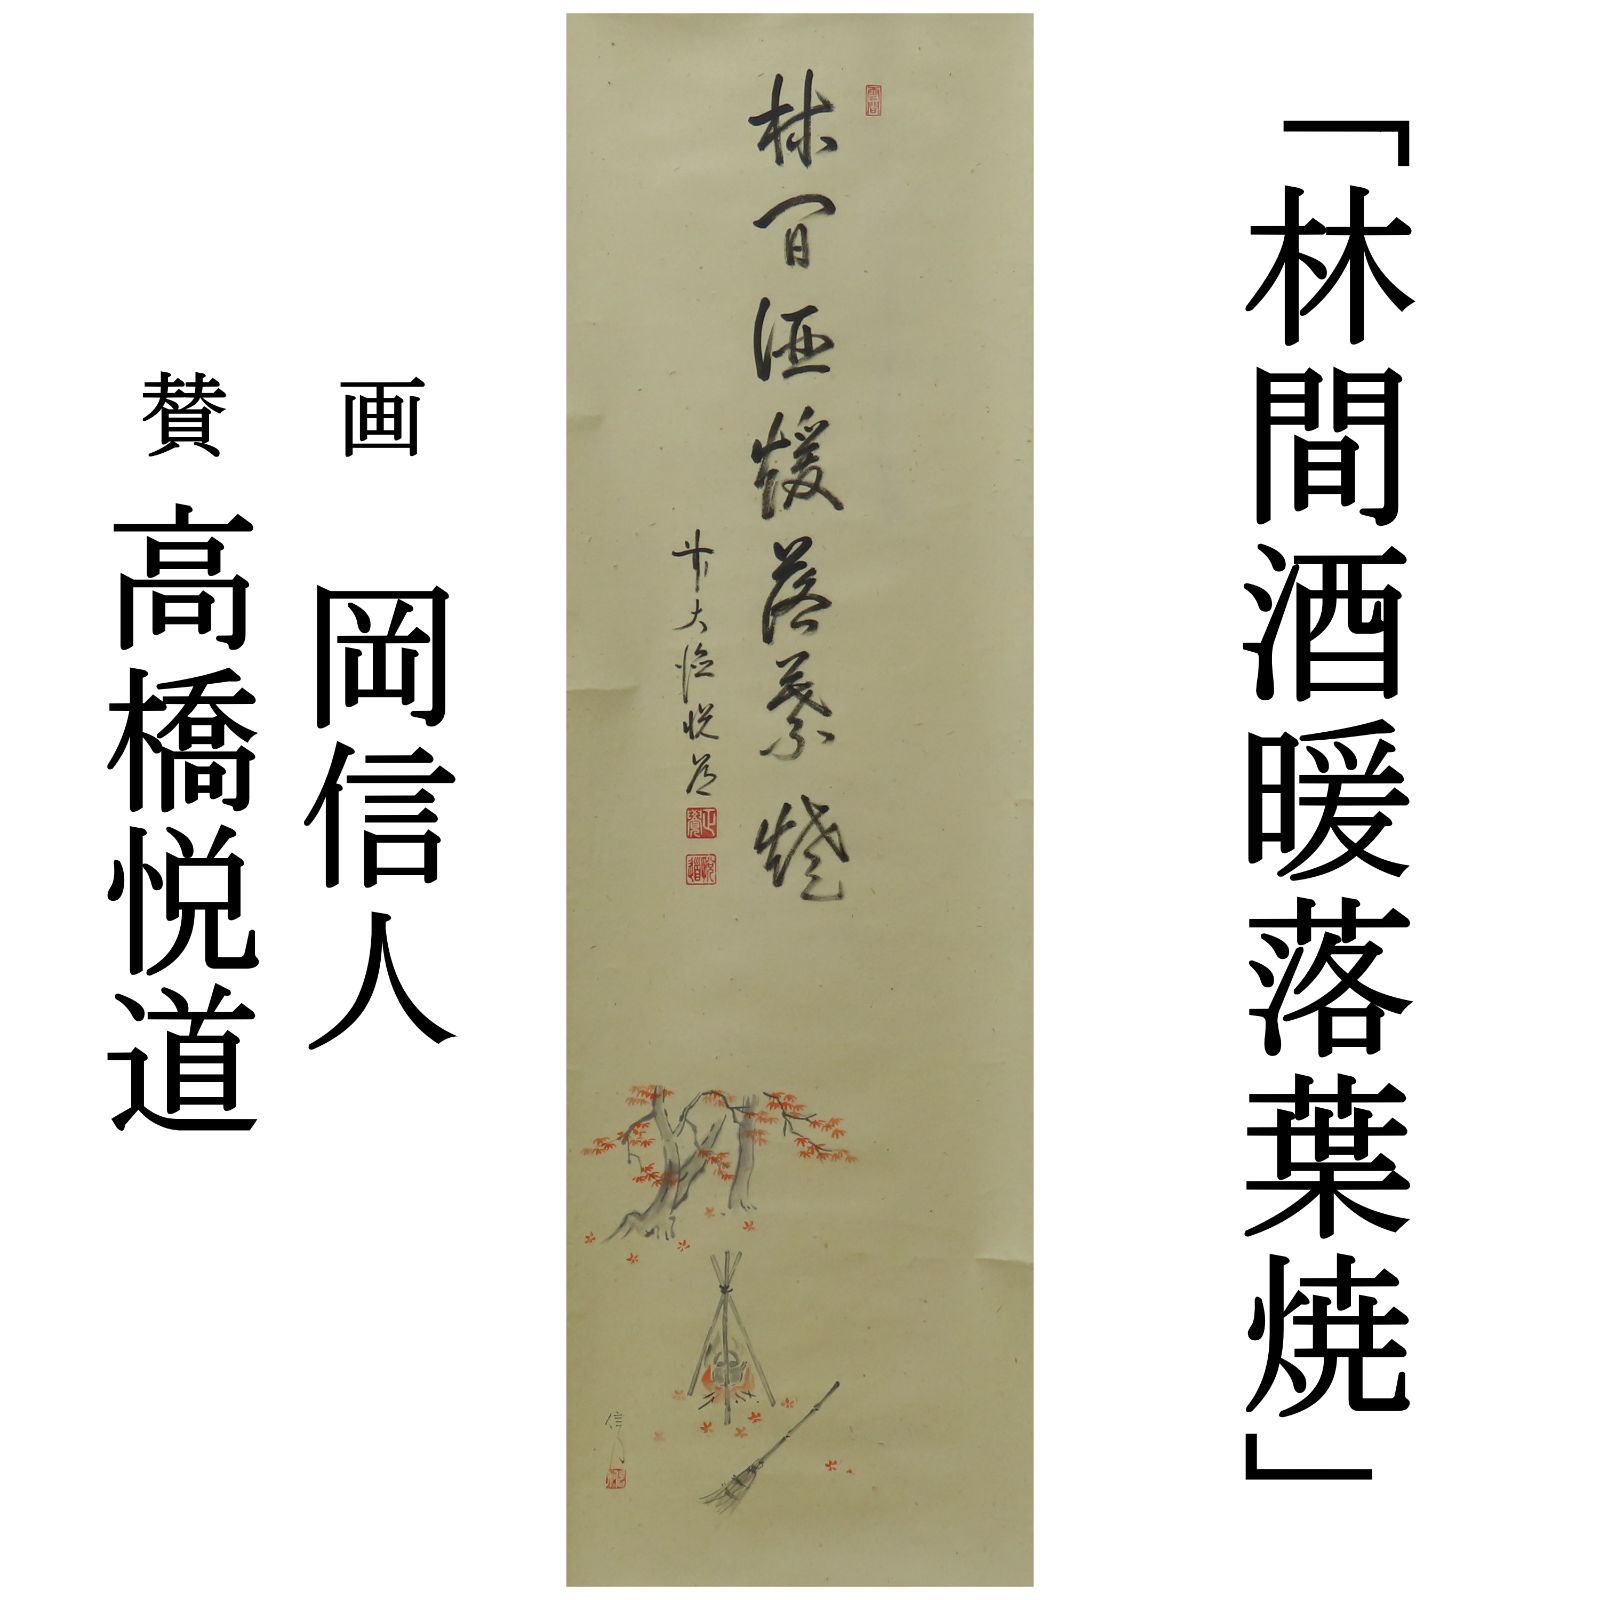 「林間酒暖落葉焼」
林間酒煖落葉焼
前大徳悦道
悦道
信人
画 岡信人
賛 高橋悦道